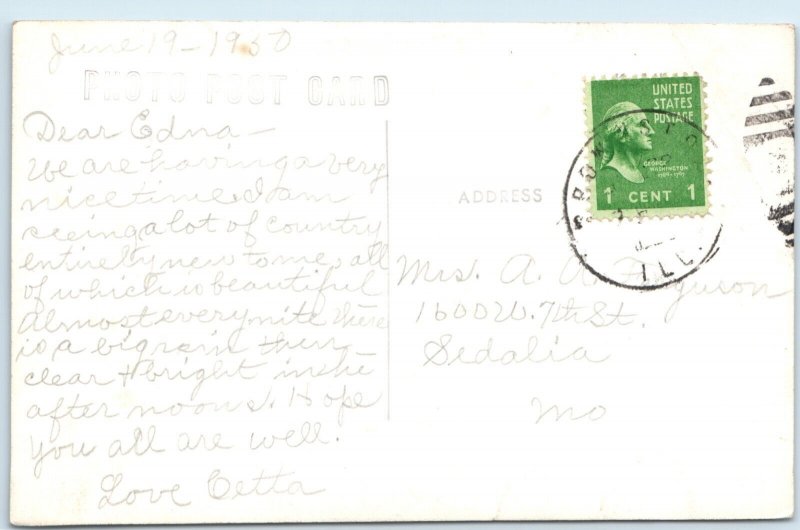 June 19-1950
PHOTO POST CARD
Dear Edna-
We are having a very
nice time. I am
seeing a lot of country
entirely new to me, all
of which is beautiful
Almost every nite there
is a big rain then
clear & bright in the
after noons. Hope
you all are well.
Love Cetta
UNITED
STATES
POSTAGE
GEORGE
WASHINGTON
1789-1797
1 CENT 1
ILL.
ADDRESS
Mrs. A. A. Ferguson
1600 W. 7th St.
Sedalia
Mo